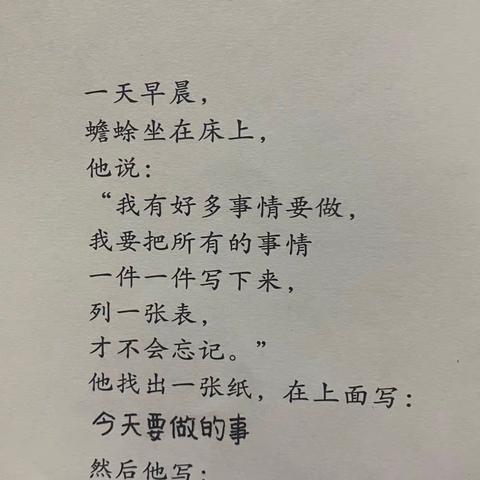 一天早晨，
蟾蜍坐在床上，
他说：
“我有好多事情要做，
我要把所有的事情
一件一件写下来，
列一张表，
才不会忘记。”
他找出一张纸，在上面写：
今天要做的事
然后他写：